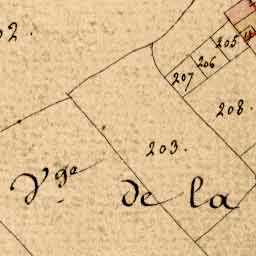 205
206
207
208.
203.
V.ge de la